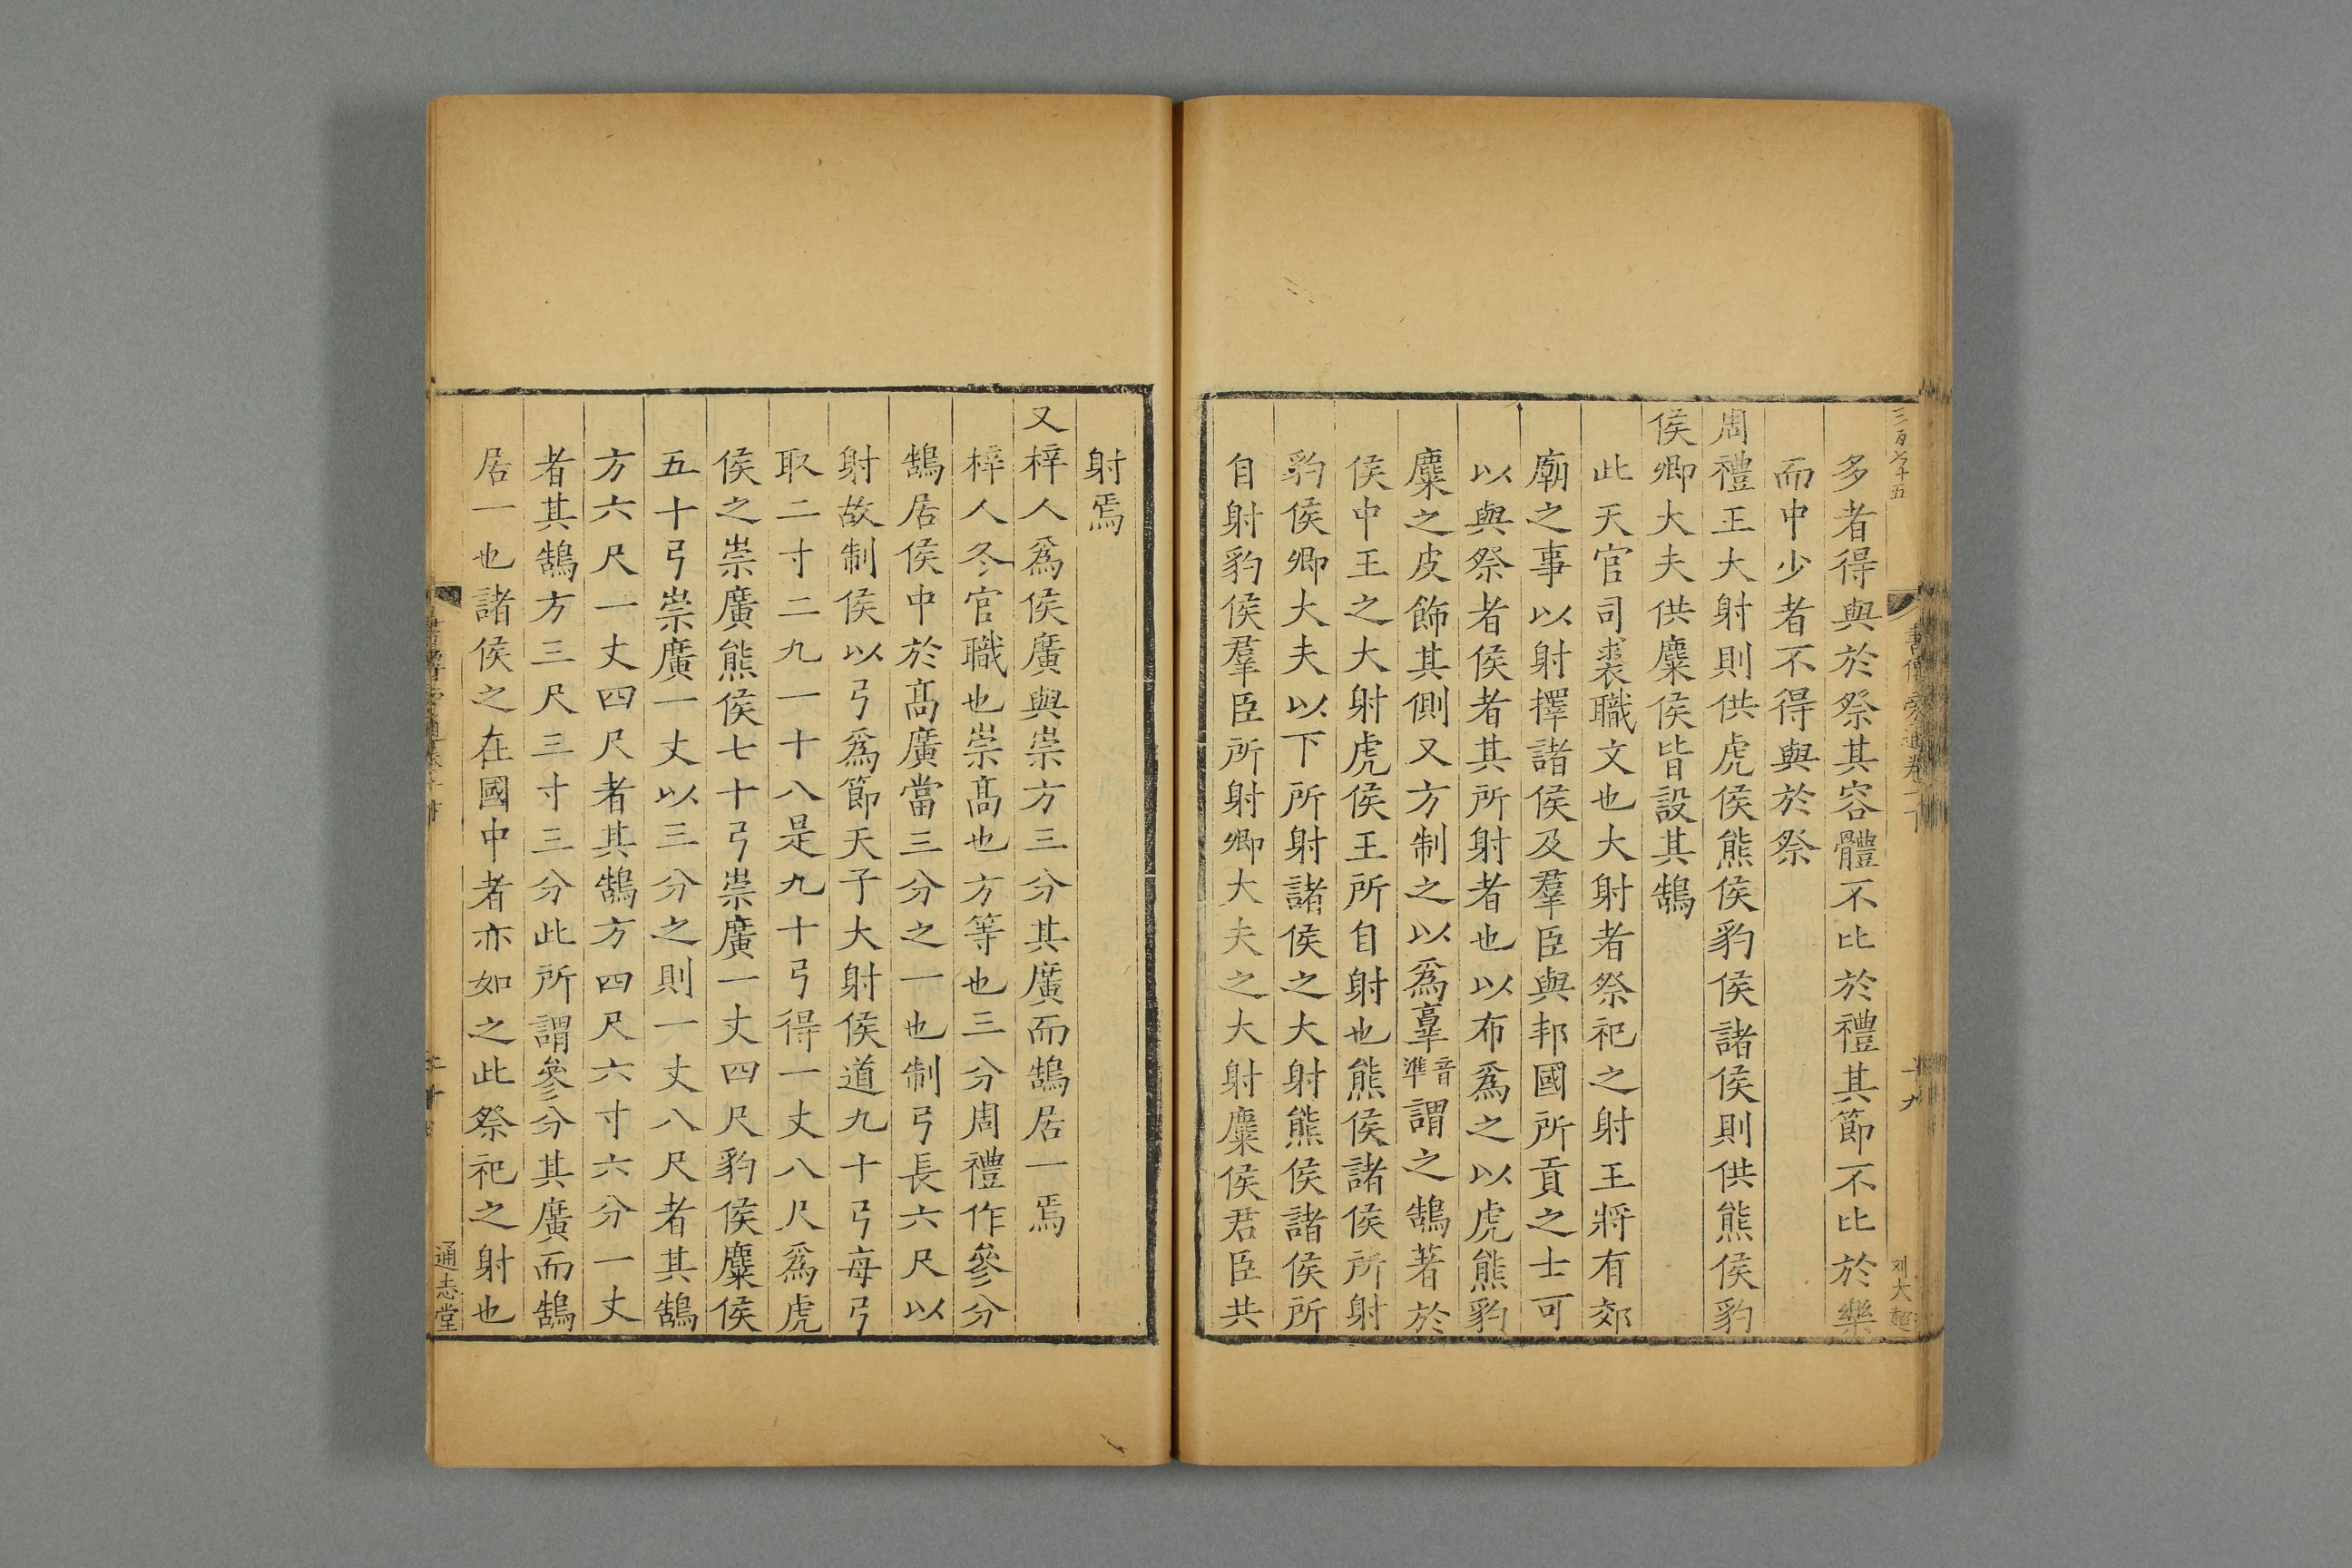 三百七十五
多者得與於祭其容體不比於禮其節不比於樂
而中少者不得與於祭
周禮王大射則供虎侯熊侯豹侯諸侯則供熊侯豹
侯卿大夫供麋侯皆設其鵠
此天官司裘職文也大射者祭祀之射王將有郊
廟之事以射擇諸侯及羣臣與邦國所貢之士可
以與祭者侯者其所射者也以布爲之以虎熊豹
麋之皮飾其側又方制之以爲𦎫音準謂之鵠著於
侯中王之大射虎侯王所自射也熊侯諸侯所射
豹侯卿大夫以下所射諸侯之大射熊侯諸侯所
自射豹侯羣臣所射卿大夫之大射麋侯君臣共
射焉
又梓人爲侯廣與崇方三分其廣而鵠居一焉
梓人冬官職也崇髙也方等也三分周禮作參分
鵠居侯中於髙廣當三分之一也制弓長六尺以
射故制侯以弓爲節天子大射侯道九十弓每弓
取二寸二九一十八是九十弓得一丈八尺爲虎
侯之崇廣熊侯七十弓崇廣一丈四尺豹侯麋侯
五十弓崇廣一丈以三分之則一丈八尺者其鵠
方六尺一丈四尺者其鵠方四尺六寸六分一丈
者其鵠方三尺三寸三分此所謂參分其廣而鵠
居一也諸侯之在國中者亦如之此祭祀之射也
通志堂